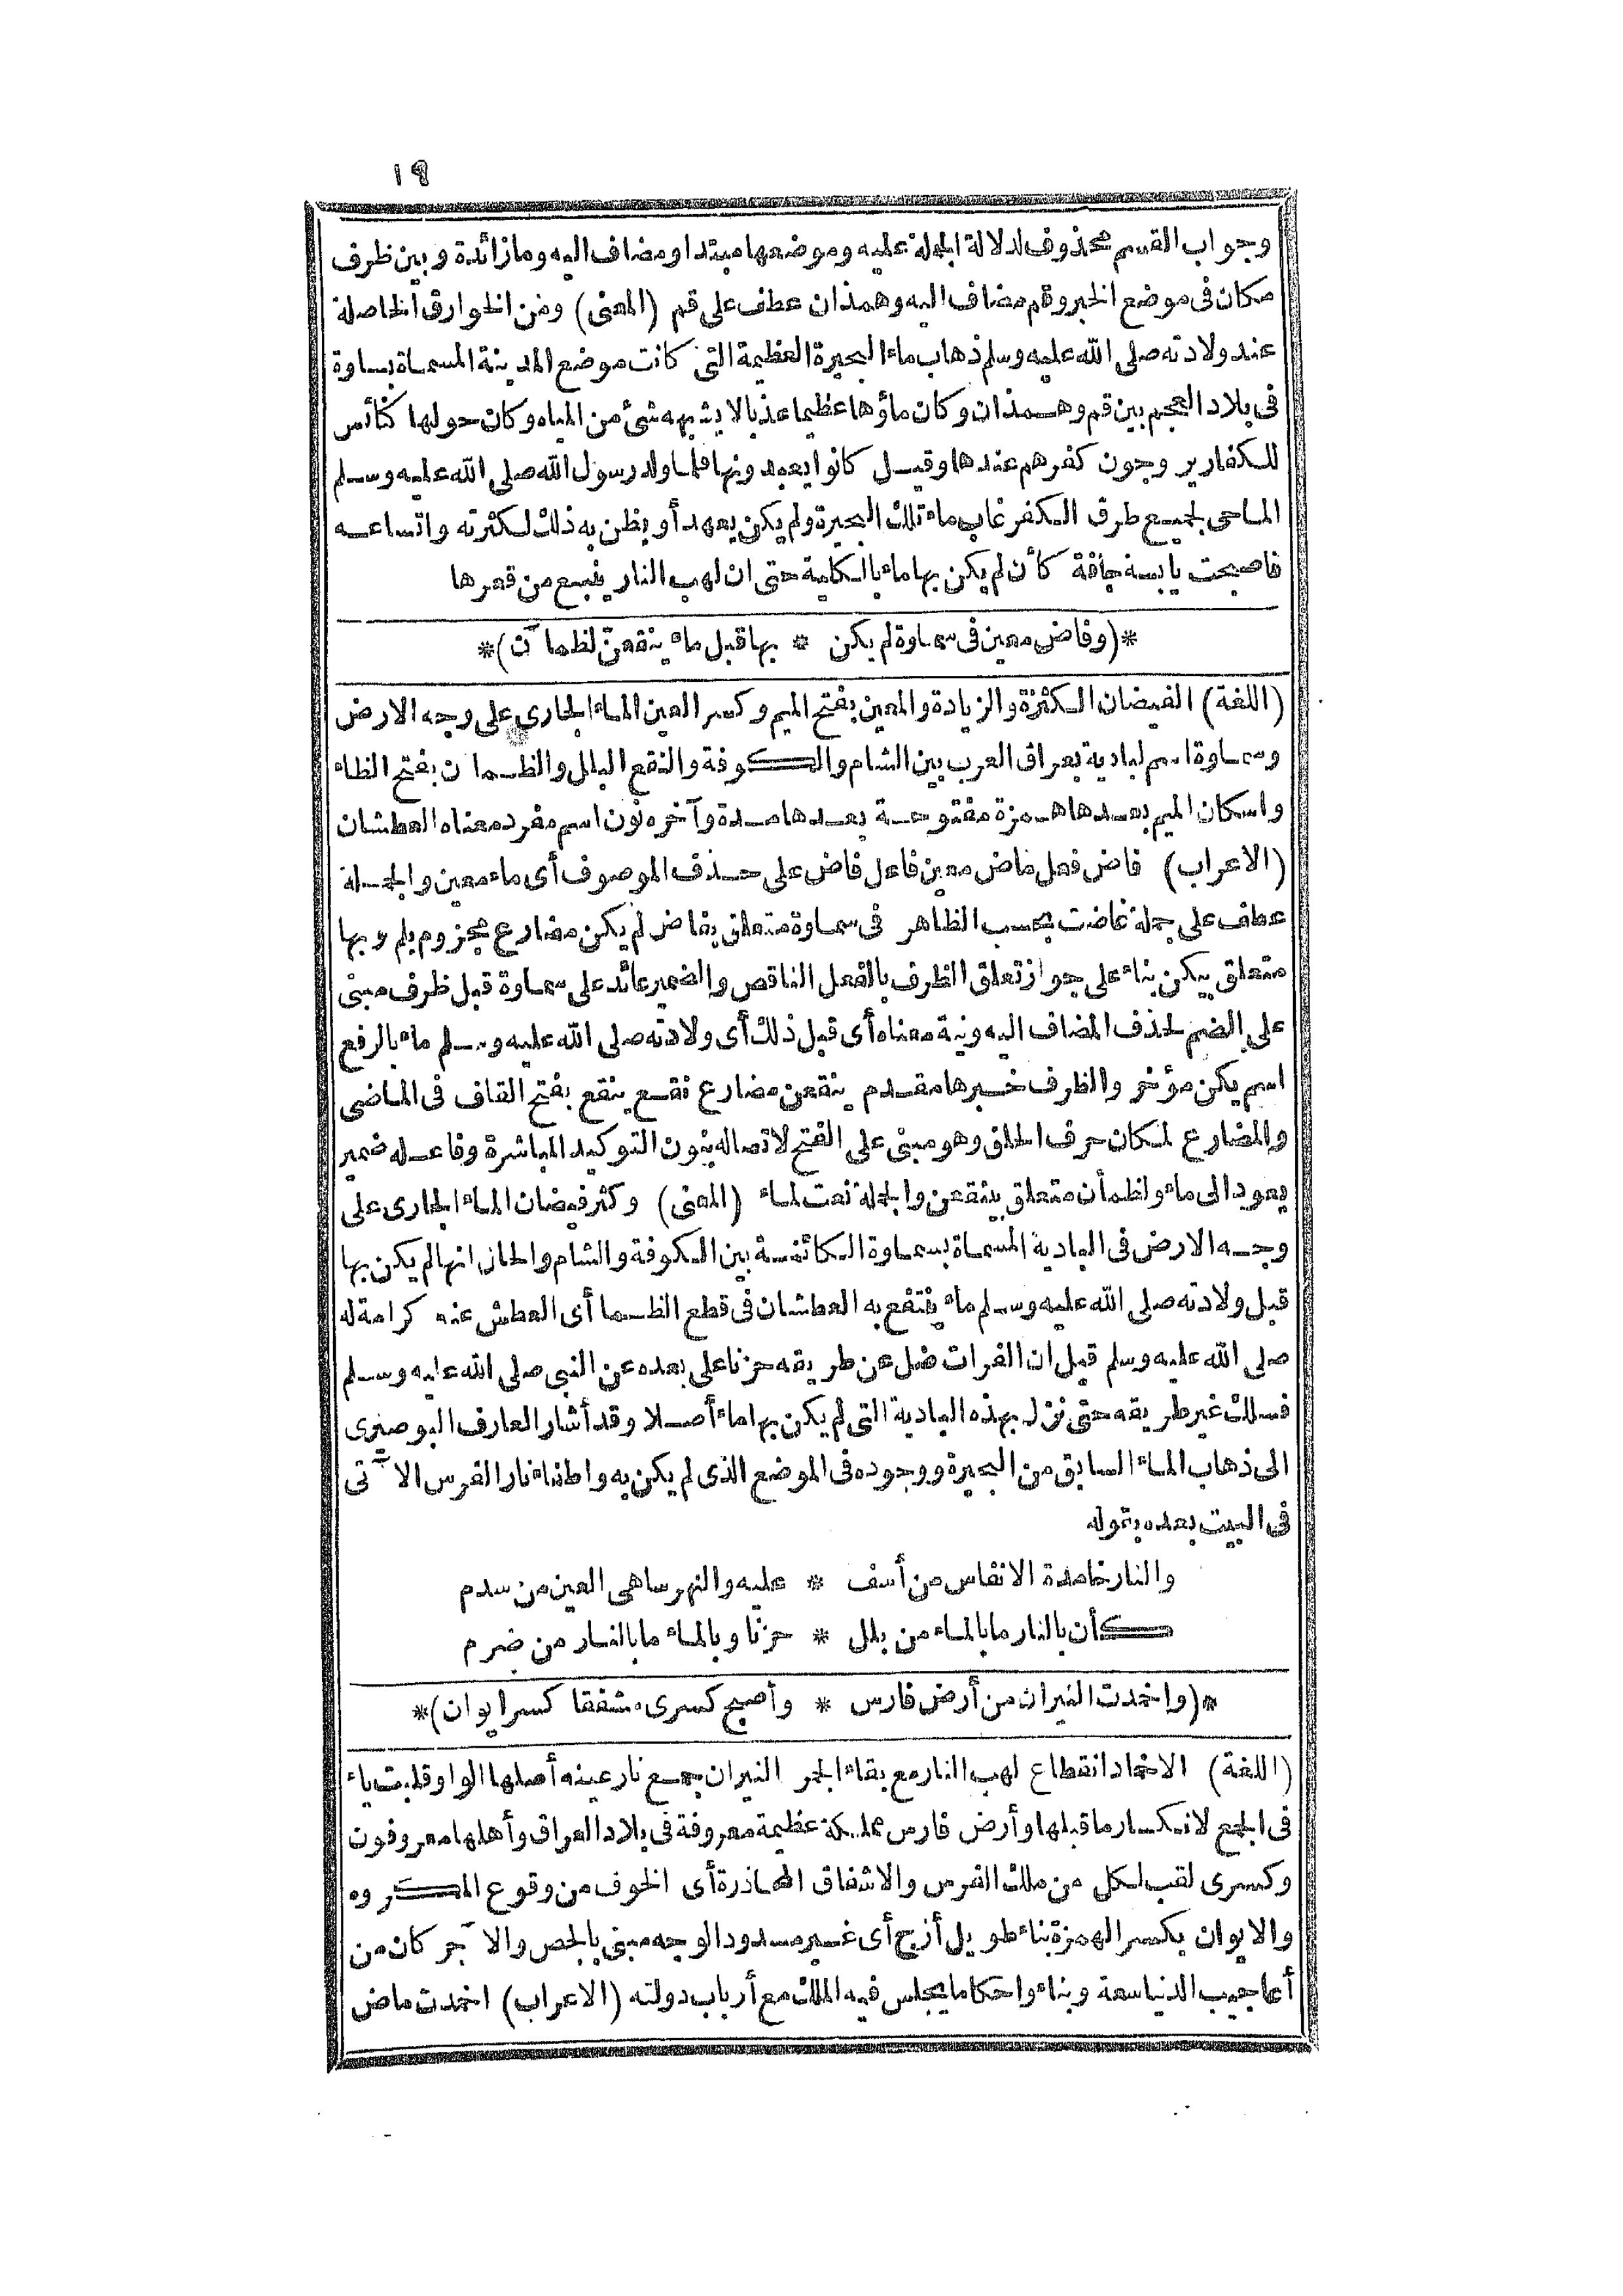 ١٩
وجواب القسم محذوف لدلالة الجملة عليه وموضعها مبتدا ومضاف اليه وما زائدة وبين ظرف
مكان فى موضع الخبر وقم مضاف اليه وهمذان عطف على قم (المعنى) ومن الخوارق الحاصلة
عند ولادته صلى الله عليه وسلم ذهاب ماء البحيرة العظيمة التى كانت موضع المدينة المسماة بساوة
فى بلاد العجم بين قم وهمذان وكان ماؤها عظيما عذبا لا يشبهه شئ من المياه وكان حولها كنائس
للكفار يروجون كفرهم عندها وقيل كانوا يعبدونها فلما ولد رسول الله صلى الله عليه وسلم
الماحى لجميع طرق الكفر غاب ماء تلك البحيرة ولم يكن يعهد أو يظن به ذلك لكثرته واتساعه
فاصبحت يابسة جافة كأن لم يكن بها ماء بالكلية حتى ان لهب النار ينبع من قعرها
*(وفاض معين فى سماوة لم يكن * بها قبل ماء ينقعن لظمآن)*
(اللغة) الفيضان الكثرة والزيادة والمعين بفتح الميم وكسر العين الماء الجارى على وجه الارض
وسماوة اسم لبادية بعراق العرب بين الشام والكوفة والنقع البلل والظمآن بفتح الظاء
واسكان الميم بعدها همزة مفتوحة بعدها مدة وآخره نون اسم مفرد معناه العطشان
(الاعراب) فاض فعل ماض معين فاعل فاض على حذف الموصوف أى ماء معين والجملة
عطف على جملة غاضت بحسب الظاهر فى سماوة متعلق بفاض لم يكن مضارع مجزوم بلم وبها
متعلق بيكن بناء على جواز تعلق الظرف بالفعل الناقص والضمير عائد على سماوة قبل ظرف مبنى
على الضم لحذف المضاف اليه ونية معناه أى قبل ذلك أى ولادته صلى الله عليه وسلم ماء بالرفع
اسم يكن مؤخر والظرف خبرها مقدم ينقعن مضارع نقع ينقع بفتح القاف فى الماضى
والمضارع لمكان حرف الحلق وهو مبنى على الفتح لاتصاله بنون التوكيد المباشرة وفاعله ضمير
يعود الى ماء ولظمأن متعلق بينقعن والجملة نعت لماء (المعنى) وكثر فيضان الماء الجارى على
وجه الارض فى البادية المسماة بسماوة الكائنة بين الكوفة والشام والحال انها لم يكن بها
قبل ولادته صلى الله عليه وسلم ماء ينتفع به العطشان فى قطع الظما أى العطش عنه كرامة له
صلى الله عليه وسلم قيل ان الفرات ضل عن طريقه حزنا على بعده عن النبى صلى الله عليه وسلم
فسلك غير طريقه حتى نزل بهذه البادية التى لم يكن بها ماء أصلا وقد أشار العارف البوصيرى
الى ذهاب الماء السابق من البحيرة ووجوده فى الموضع الذى لم يكن به واطفاء نار الفرس الآتى
فى البيت بعده بقوله
والنار خامدة الانفاس من أسف * عليه والنهر ساهى العين من سدم
كأن بالنار ما بالماء من بلل * حزنا وبالماء ما بالنار من ضرم
*(واخمدت النيران من أرض فارس * وأصبح كسرى مشفقا كسر ايوان)*
(اللغة) الاخماد انقطاع لهب النار مع بقاء الجمر النيران جمع نار عينه أصلها الواو قلبت ياء
فى الجمع لانكسار ما قبلها وأرض فارس مملكة عظيمة معروفة فى بلاد العراق وأهلها معروفون
وكسرى لقب لكل من ملك الفرس والاشفاق المحاذرة أى الخوف من وقوع المكروه
والايوان بكسر الهمزة بناء طويل أزج أى غير مسدود الوجه مبنى بالجص والآجر كان من
أعاجيب الدنيا سعة وبناء واحكاما يجلس فيه الملك مع أرباب دولته (الاعراب) اخمدت ماض